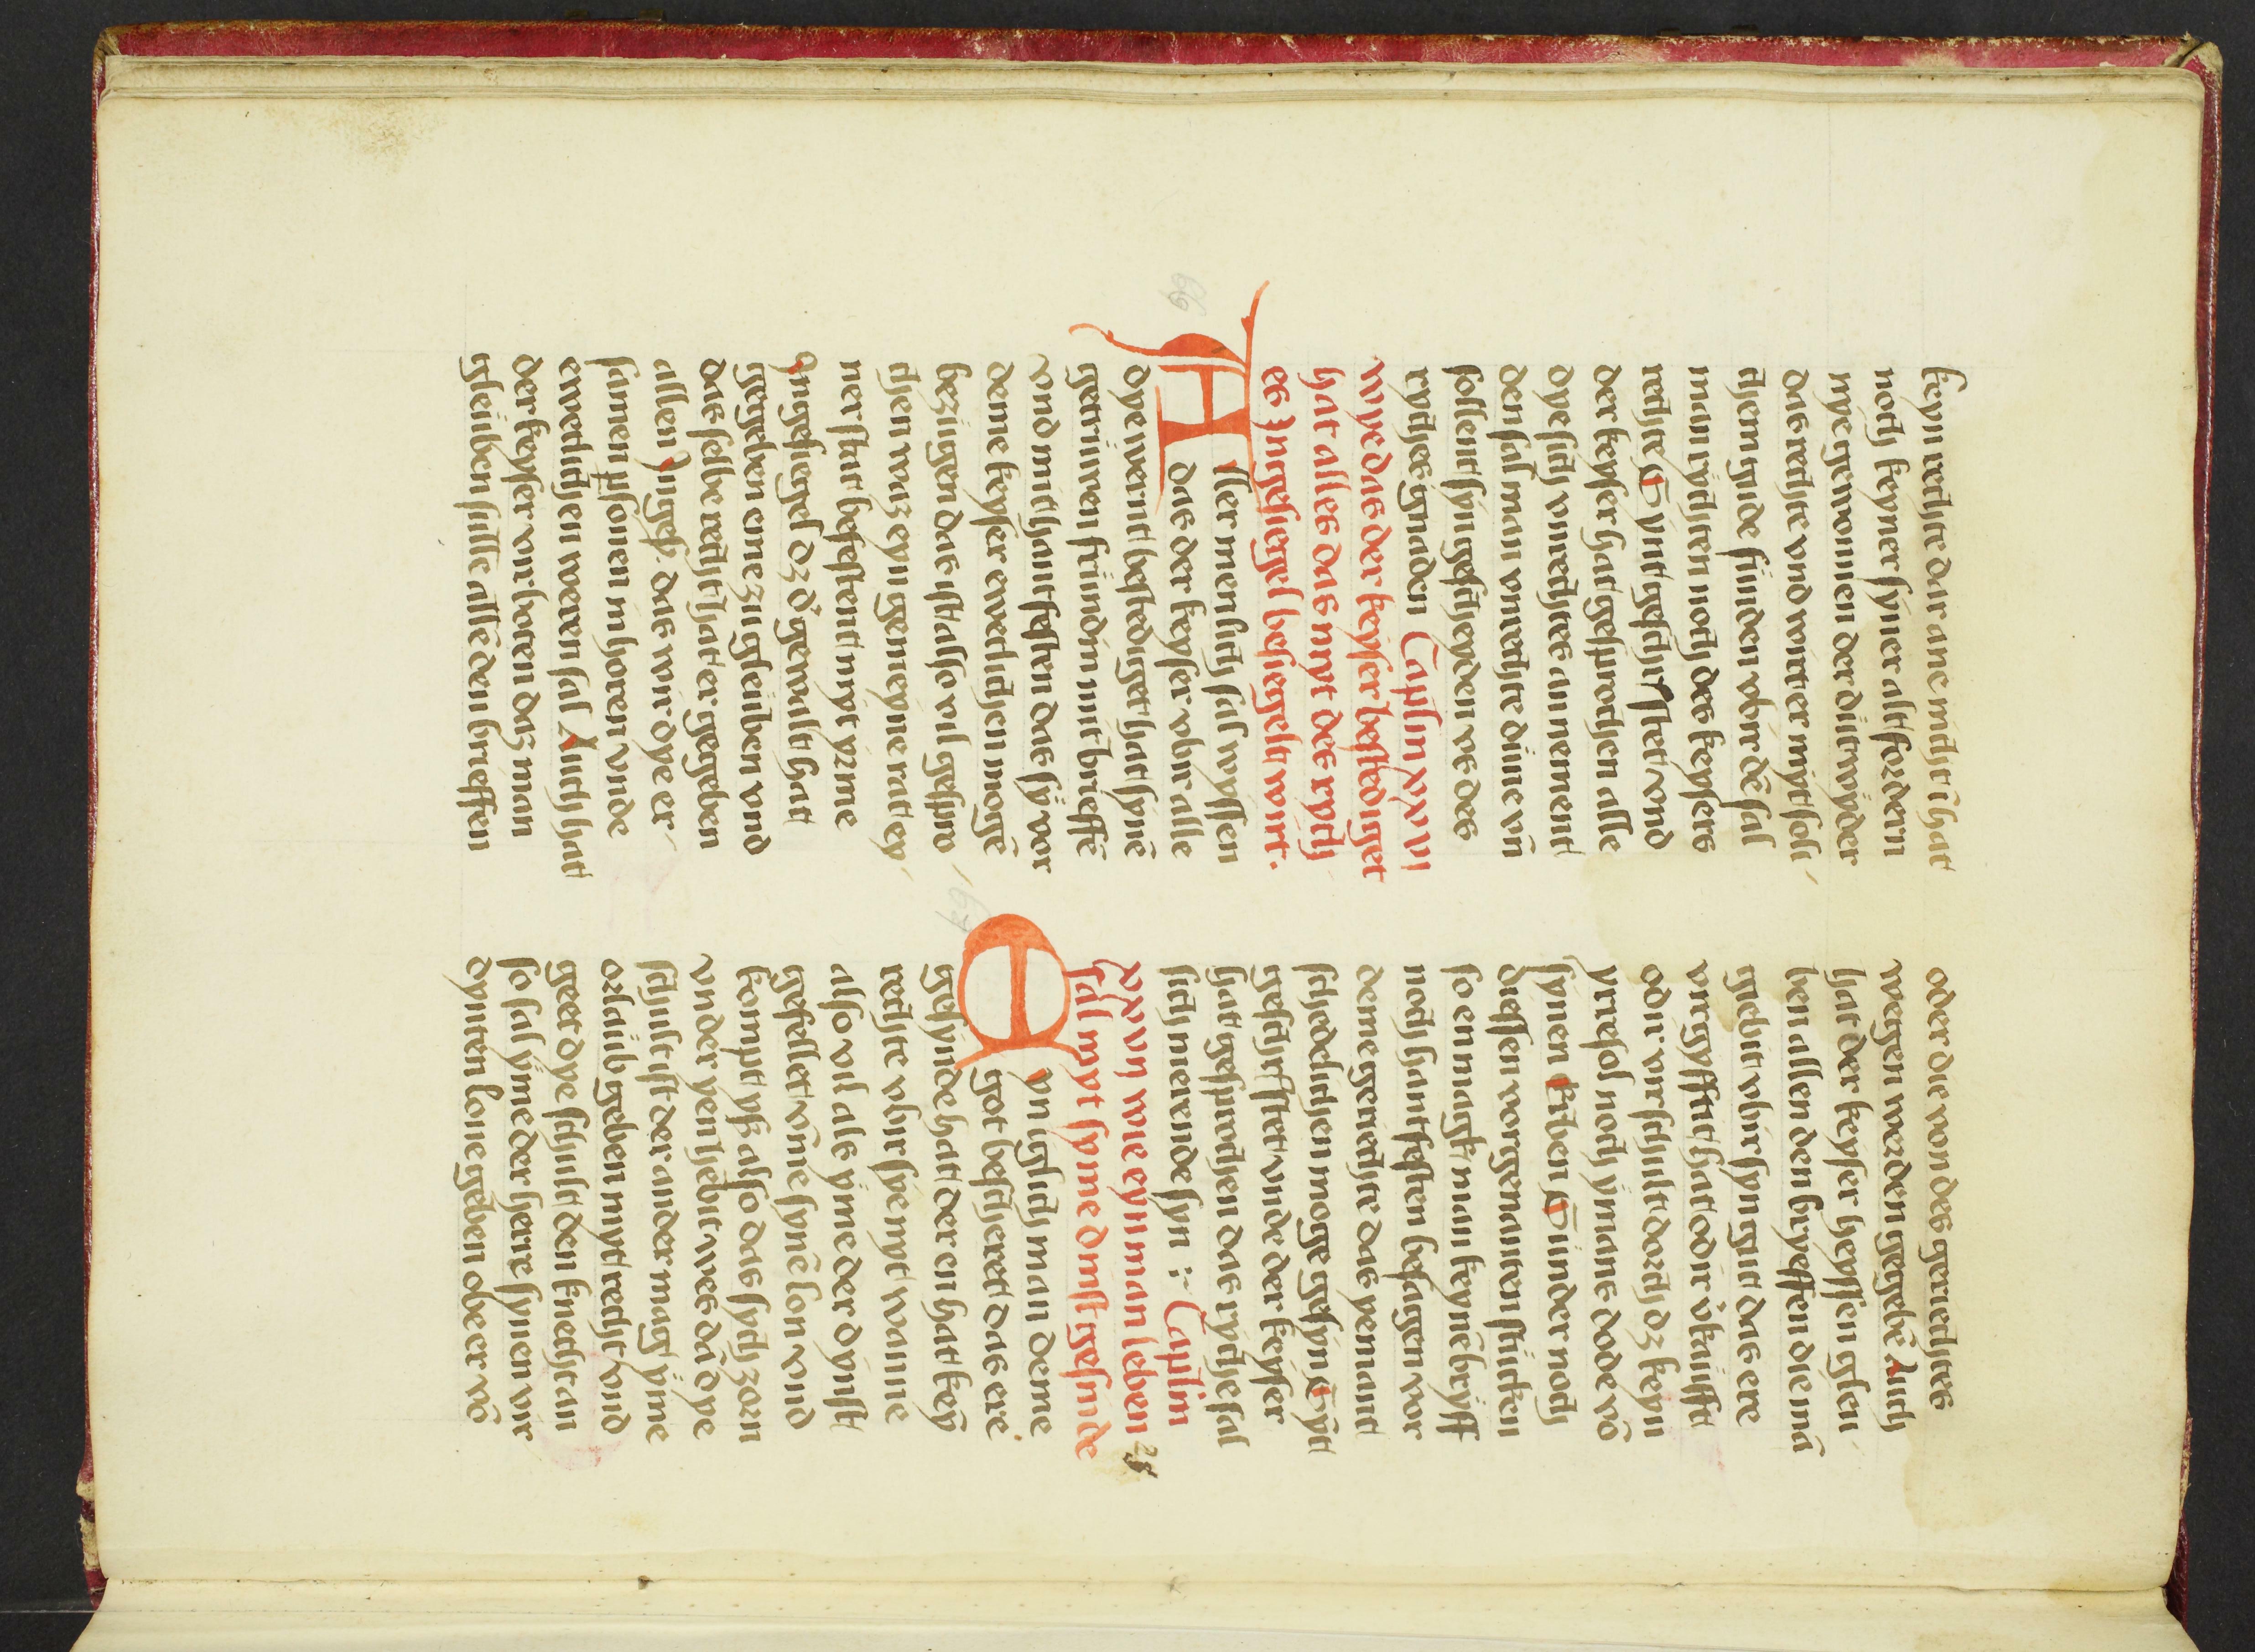 keyn recht dar ane nicht hatt
noch keyner syner altfordern
nye gewonnen der düt wyder
das recht vnd wirt er myt soli
chem gude fünden vbir dē sal
man rychten noch des keysers
rechte Synt geschyfftet vnd
der keyser hat gesprochen alle
dye sich vnrechtes annement
den sal man vnrechte düne vn̄
sollent syn gescheyden vs des
ryches gnaden Capl'm xxvi
wye das der keyser bestediget
hat alles das myt des rychs
es Ingesiegel besiegelt wirt.
Aller menlich sal wyssen
das der keyser vbir alle
dye werntt bestediget hat synē
getruwen fründin mit brieffē
vnd mit hantfesten das sy vor
deme keyser ewelichen mogē
bezugen das ist also vil gespro
chen waz eyn gemeyne rat ey
ner stat besestent myt yrme
Ingesiegel dz d' gewalt hat
gegeben one zu gleüben vnd
das selbe recht hat er gegeben
allen Ingeß. das wir dye er
samen p̱sonen in horen vnde
ewelichen weren sal Auch hatt
der keyser virboten daz man
gleüben sulle alle den brieffen
oder die von des gerichtes
wegen werden gegebē Auch
hat der keyser heyssen gleu
ben allen den bryeffen die mā
gebit vbir syn gut das ere
virgyfftit hat odir v'kaufft
odir virschult doch dz keyn
yrresol noch ymans dode vō
synen Erben Sunder noch
dieffen vorgenanten stücken
so en magk man keynē bryff
noch hantfesten besagen vor
deme gerichte das yemant
schedelichen moge gesyn Syt
geschyfftet vnde der keyser
hat gesprochen das ryche sal
sich merende syn :~ Capl'm
xxvij wie eyn man leben
sal myt syme dinstgesinde
Eyn iglich man deme
got beschert das ere
gesynde hatt der en hatt key
recht vbir sye myt wanne
also vil als yme der dynst
gefellet vn̄ me synē lon vnd
kompt yß also das sych zorn
vnder yen hebit wes dā dye
schult ist der ander mag yme
orlaub geben myt recht vnd
geet dye schult den knecht an
so sal yme der herre synen vir
dynten lone geben obe er vō